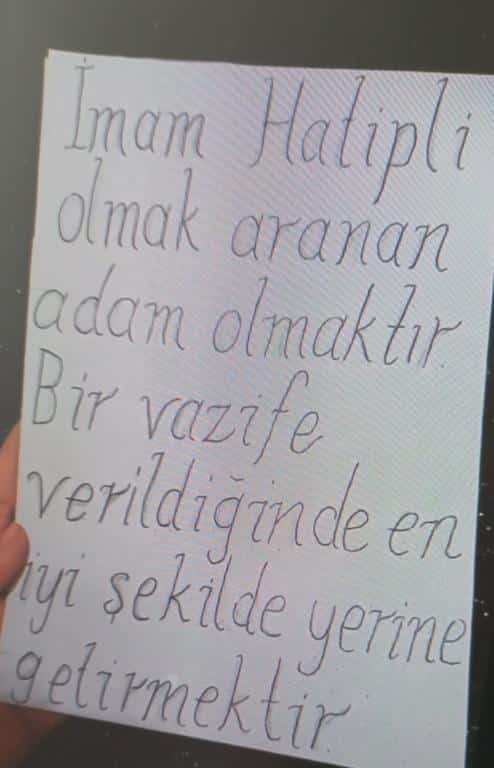 İmam Hatipli
olmak aranan
adam olmaktır.
Bir vazife
verildiğinde en
iyi şekilde yerine
getirmektir.